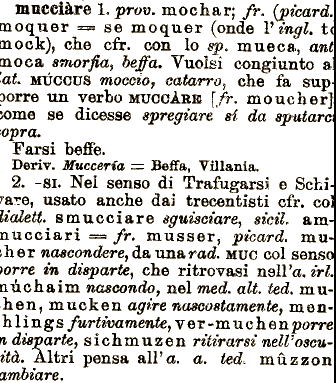 mucciàre 1. prov. mochar; fr. (picard.
moquer = se moquer (onde l'ingl. to
mock), che cfr. con lo sp. mueca, ant
moca smorfia, beffa. Vuolsi congiunto al
lat. MÚCCUS moccio, catarro, che fa sup-
porre un verbo MUCCÀRE [fr. moucher]
come se dicesse spregiare sí da sputarci
sopra.
Farsi beffe.
Deriv. Muccería = Beffa, Villanía.
2. -SI. Nel senso di Trafugarsi e Schi-
vare, usato anche dai trecentisti cfr. col
dialett. smucciare sguisciare, sicil. am-
mucciari = fr. musser, picard. mu-
cher nascondere, da una rad. MUC col senso
porre in disparte, che ritrovasi nell'a. irl.
múchaim nascondo, nel med. alt. ted. mu-
chen, mucken agire nascostamente, men-
chlings furtivamente, ver-muchen porre
in disparte, sichmuzen ritirarsi nell'oscu-
rità. Altri pensa all'a. a. ted. mûzzon
cambiare.